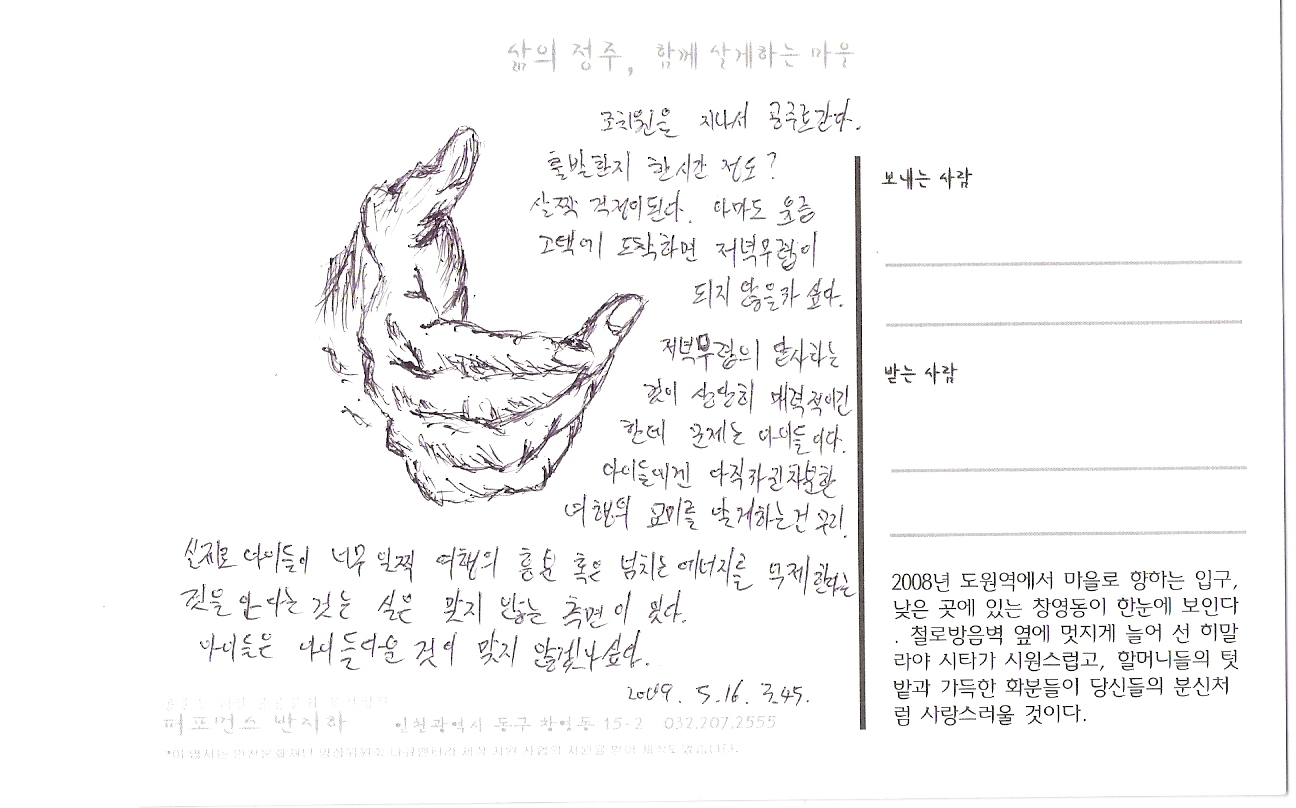 삶의 정주, 함께 살게하는 마을
조치원을 지나서 공주로간다.
출발한지 한시간 정도?
살짝 걱정이된다. 아마도 윤증
고택에 도착하면 저녁무렵이
되지 않을까 싶다.
저녁무렵의 답사라는
것이 상당히 매력적이긴
한데 문제는 아이들이다.
아이들에겐 아직까진 차분한
여행의 묘미를 알게하는건 무리!
실제로 아이들이 너무 일찍 여행의 흥분 혹은 넘치는 에너지를 억제한다는
것을 안다는 것는 실은 맞지 않는 측면이 있다.
아이들은 아이들다운 것이 맞지 않겠나 싶다.
2009. 5.16. 3.45.
퍼포먼스 반지하 인천광역시 동구 창영동 15-2 032.207.2555
보내는 사람
받는 사람
2008년 도원역에서 마을로 향하는 입구,
낮은 곳에 있는 창영동이 한눈에 보인다
. 철로방음벽 옆에 멋지게 늘어 선 히말
라야 시타가 시원스럽고, 할머니들의 텃
밭과 가득한 화분들이 당신들의 분신처
럼 사랑스러울 것이다.